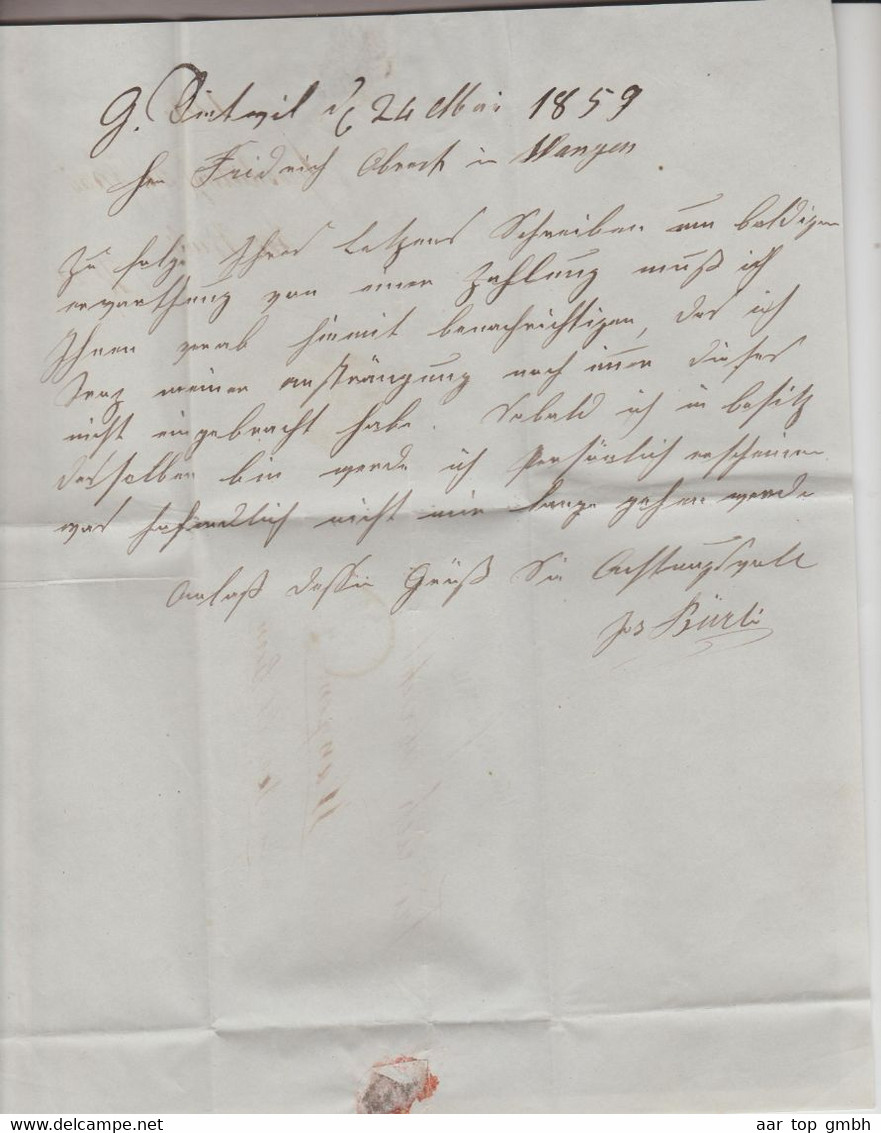 G. Dietwil d. 24 Mai 1859
Hrn Fridrich Obrect in Wangen
Zu folge Ihres Letzens Schreiben um baldigen
erwarthung von einer Zahlung muß ich
Ihnen vorab hiemit benachrichtigen, das ich
Troz meiner ansträngung noch immer dieses
nicht eingebracht habe. Sobald ich in besitz
desselben bin werde ich Persönlich erscheinen
was hofendlich nicht mir lange gehen werde
Anlaß dessen Grüß Sie Achtungsvoll
Jos Bürli
aar top gmbh
DELCAMPE.NET